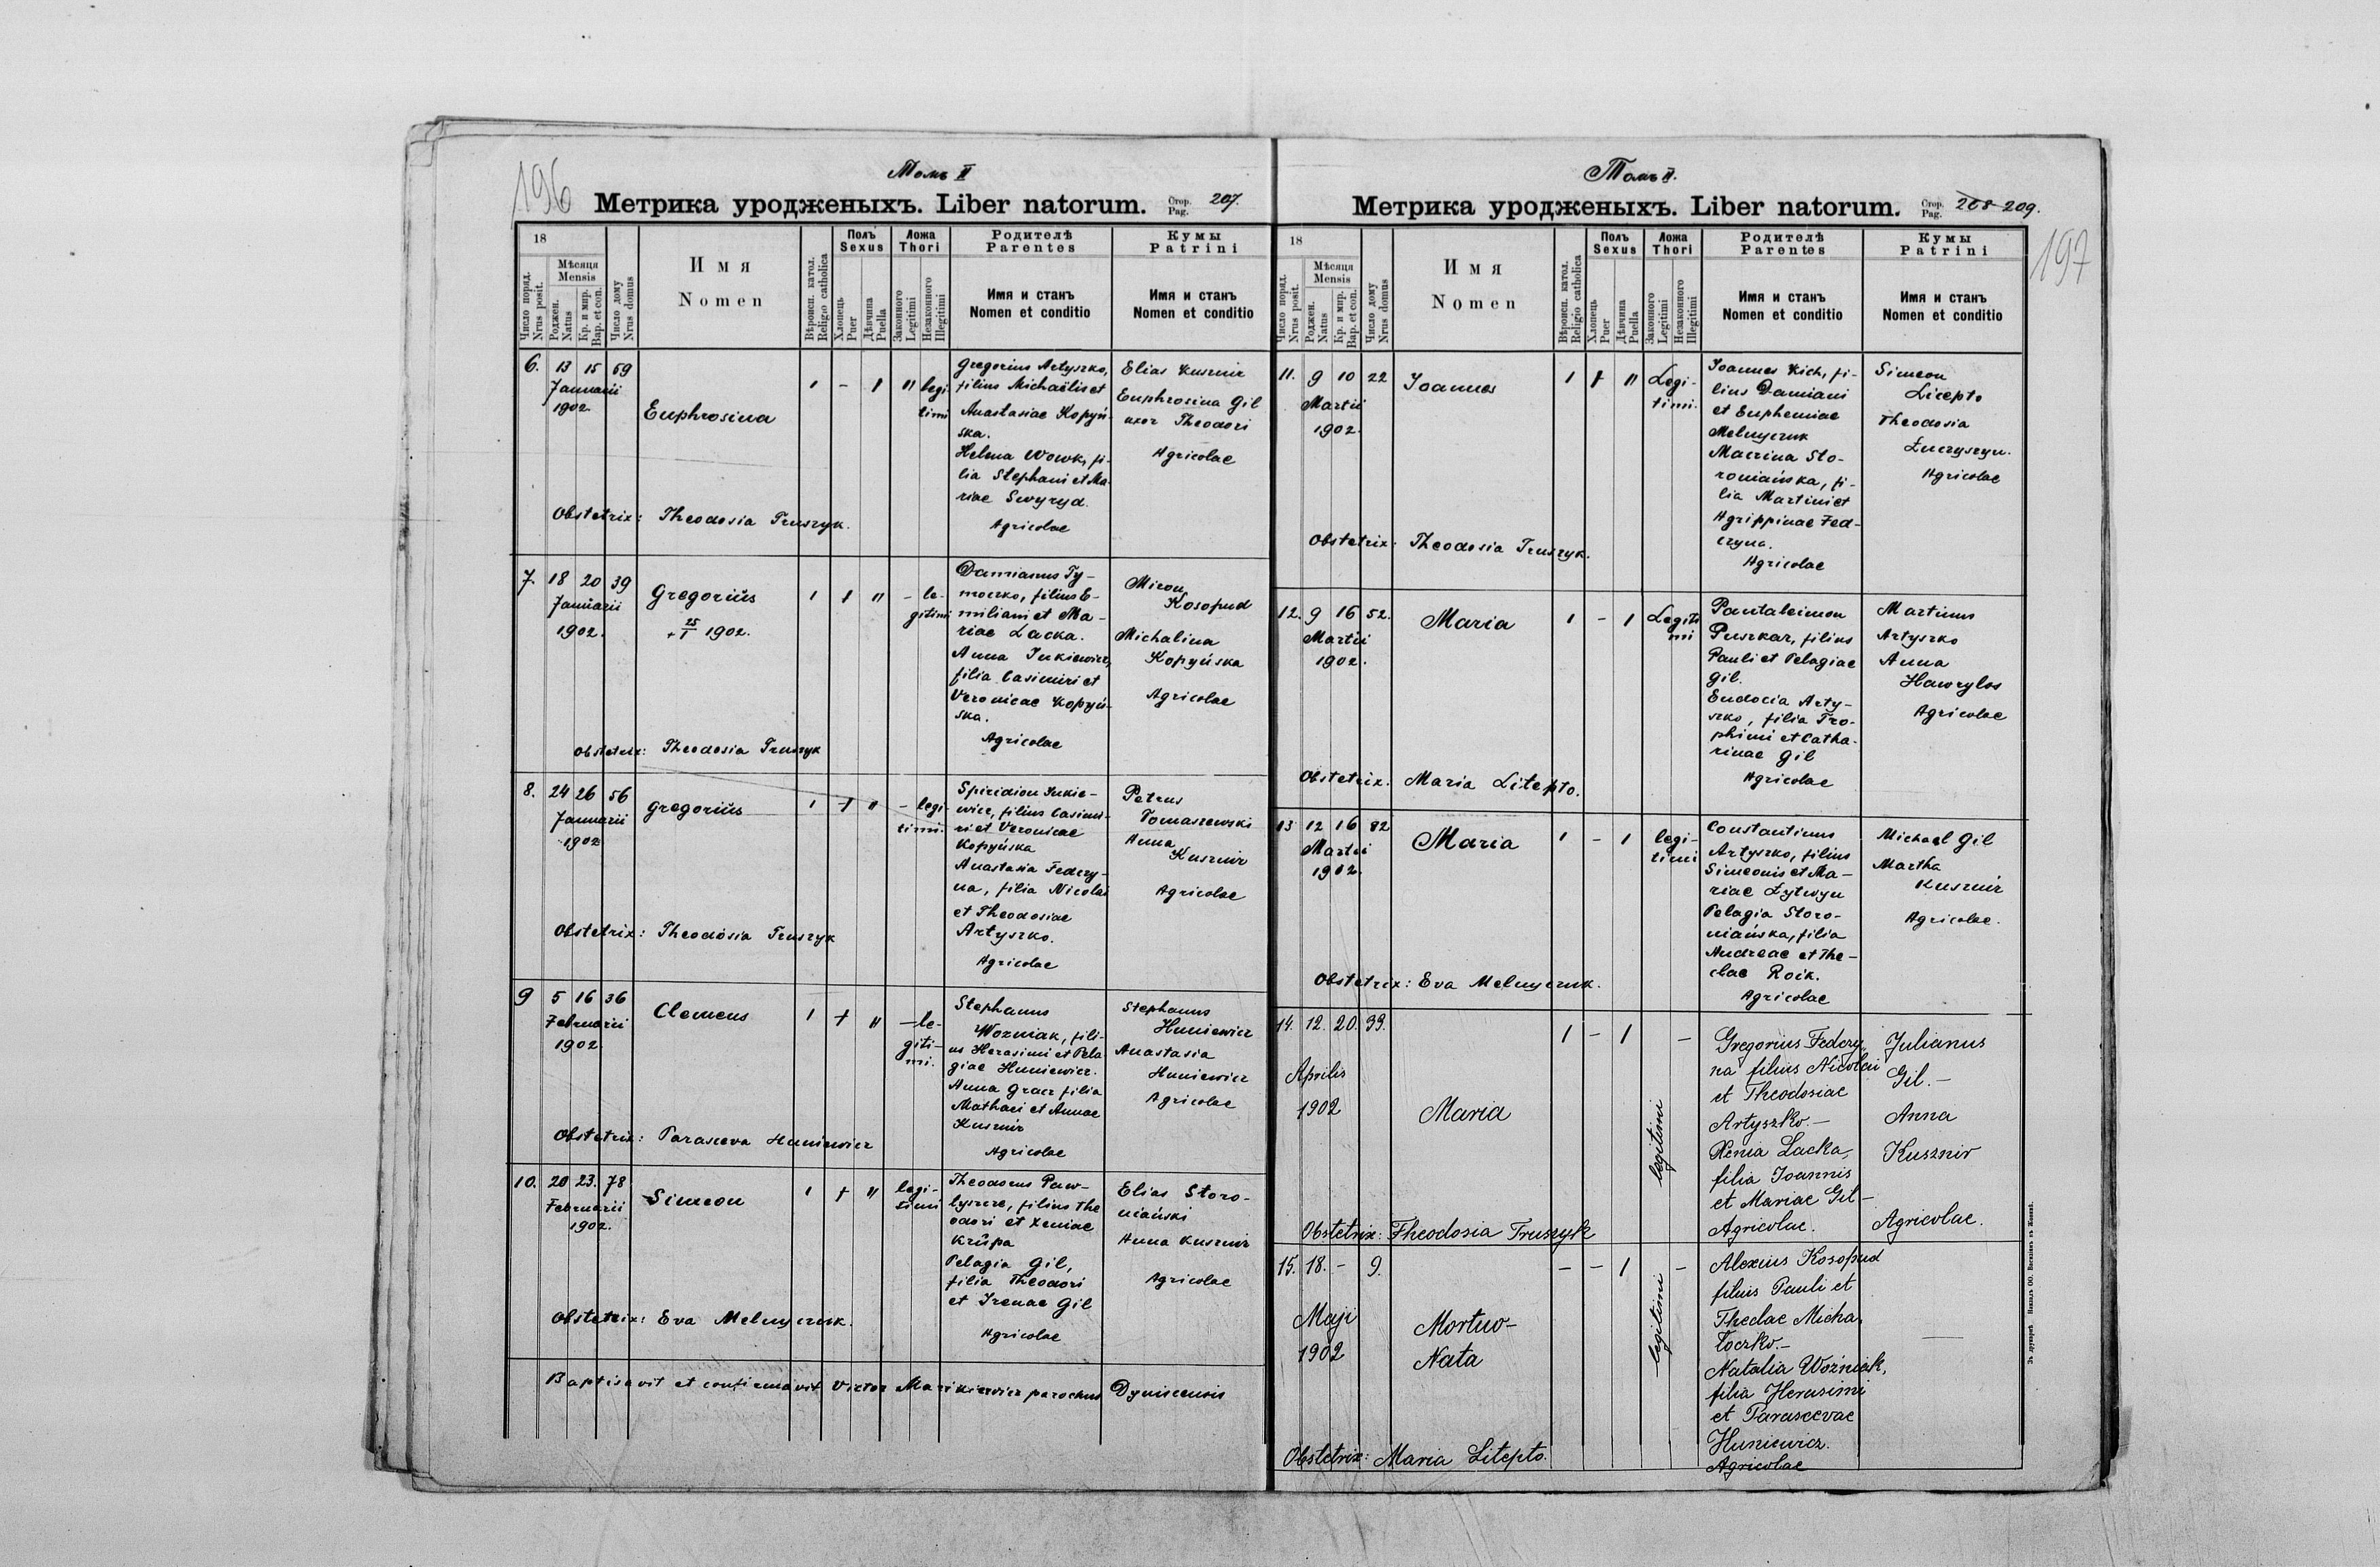 196
Томъ II
Метрика уродженыхъ. Liber natorum. Стор. Pag. 207.
18
Мѣсяця
Mensis
Число поряд.
Nrus posit.
Роджен.
Natus
Кр. и мир.
Bap. et con.
Число дому
Nrus domus
Имя
Nomen
Вѣроисп. катол.
Religio catholica
Полъ
Sexus
Хлопець
Puer
Дѣвчина
Puella
Ложа
Thori
Законного
Legitimi
Незаконного
Illegitimi
Родителѣ
Parentes
Имя и станъ
Nomen et conditio
Кумы
Patrini
Имя и станъ
Nomen et conditio
6. 13 15 69
Januarii
1902.
Euphrosina
1 - 1 " legi-
timi
Gregorius Artyszko,
filius Michaëlis et
Anastasiae Kopyń-
ska.
Helena Wowk, fi-
lia Stephani et Ma-
riae Swyryd.
Agricolae
Elias Kusznir
Euphrosina Gil
uxor Theodori
Agricolae
Obstetrix: Theodosia Truszyk.
7. 18 20 39
Januarii
1902.
Gregoriŭs
+ 25/I 1902.
1 1 " - le-
gitimi
Damianus Ty-
moczko, filius E-
miliani et Ma-
riae Lacka.
Anna Jukiewicz,
filia Casimiri et
Veronicae Kopyń-
ska.
Agricolae
Miron
Kosopud
Michalina
Kopyńska
Agricolae
Obstetrix: Theodosia Truszyk
8. 24 26 56
Januarii
1902
Gregoriŭs
1 1 " - legi-
timi.
Spiridion Jukie-
wicz, filius Casimi-
ri et Veronicae
Kopyńska
Anastasia Fedczy-
na, filia Nicolai
et Theodosiae
Artyszko.
Agricolae
Petrus
Tomaszewski
Anna
Kusznir
Agricolae
Obstetrix: Theodosia Truszyk
9 5 16 36
Februarii
1902
Clemens
1 1 " - le-
giti-
mi.
Stephanus
Wozniak, fili-
us Herasimi et Pela
giae Huniewicz.
Anna Gracz filia
Mathaei et Annae
Kusznir
Agricolae
Stephanus
Huniewicz
Anastasia
Huniewicz
Agricolae
Obstetrix: Parasceva Huniewicz
10. 20 23. 78
Februarii
1902.
Simeon
1 1 " legi-
timi
Theodorus Paw-
lyszcze, filius The
odori et Xeniae
Krŭpa
Pelagia Gil,
filia Theodori
et Irenae Gil
Agricolae
Elias Storo-
niański
Anna Kusznir
Agricolae
Obstetrix: Eva Melnyczuk.
Baptisavit et confirmavit Victor Mazikiewicz parochus Dyniscensis
197
Томъ II.
Метрика уродженыхъ. Liber natorum. Стор. Pag. 208 209.
18
Мѣсяця
Mensis
Число поряд.
Nrus posit.
Роджен.
Natus
Кр. и мир.
Bap. et con.
Число дому
Nrus domus
Имя
Nomen
Вѣроисп. катол.
Religio catholica
Полъ
Sexus
Хлопець
Puer
Дѣвчина
Puella
Ложа
Thori
Законного
Legitimi
Незаконного
Illegitimi
Родителѣ
Parentes
Имя и станъ
Nomen et conditio
Кумы
Patrini
Имя и станъ
Nomen et conditio
11. 9 10 22
Martii
1902.
Joannes
1 1 " Legi-
timi.
Joannes Kich, fi-
lius Damiani
et Euphemiae
Melnyczuk
Macrina Sto-
roniańska, fi-
lia Martini et
Agrippinae Fed-
czyna.
Agricolae
Simeon
Licepto
Theodosia
Łuczyszyn.
Agricolae
Obstetrix: Theodosia Truszyk.
12. 9 16 52.
Martii
1902.
Maria
1 - 1 Legiti
mi
Pantaleimon
Puszkar, filius
Pauli et Pelagiae
Gil.
Eudocia Arty-
szko, filia Tro-
phimi et Catha-
rinae Gil
Agricolae
Martinus
Artyszko
Anna
Hawrylos
Agricolae
Obstetrix. Maria Litepto.
13 12 16 82
Martii
1902.
Maria
1 - 1 legi-
timi
Constantinus
Artyszko, filius
Simeonis et Ma-
riae Łytwyn
Pelagia Storo-
niańska, filia
Andreae et The-
clae Roik.
Agricolae
Michael Gil
Martha
Kusznir
Agricolae.
Obstetrix: Eva Melnyczuk.
14. 12. 20. 39.
Aprilis
1902
Maria
1 - 1 -
legitimi
Gregorius Fedczy
na filius Nicolai
et Theodosiae
Artyszko.-
Xenia Lacka,
filia Joannis
et Mariae Gil-
Agricolae.
Julianus
Gil.-
Anna
Kusznir
Agricolae.
Obstetrix: Theodosia Truszyk
15. 18. - 9.
Maji
1902
Mortuo-
Nata
- - 1 -
legitimi
Alexius Kosopud
filius Pauli et
Theclae Micha
łoczko.-
Natalia Woźniak,
filia Herasimi
et Parascevae
Huniewicz.
Agricolae
Obstetrix: Maria Litepto.